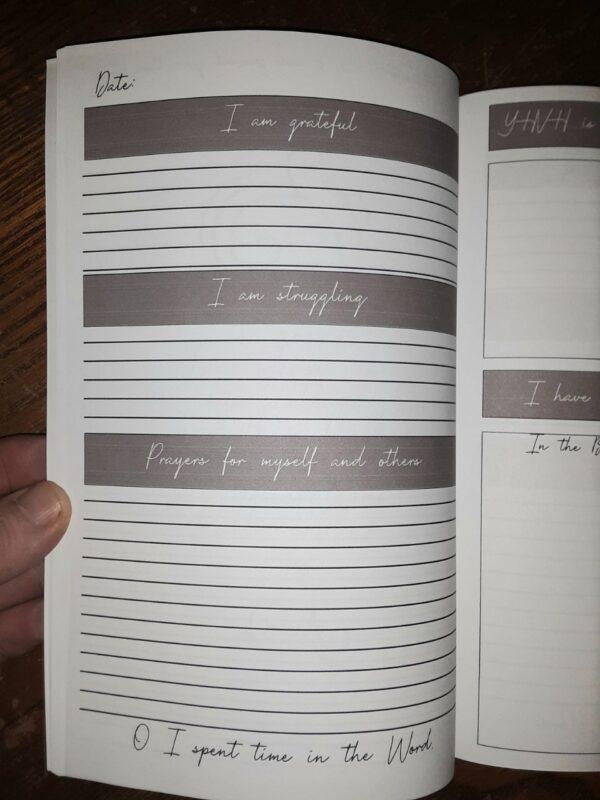 Date:
I am grateful
I am struggling
Prayers for myself and others
O I spent time in the Word.
YHVH is
I have
In the